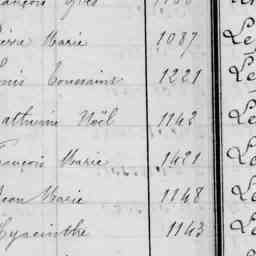 François Yves 1188
ierre Marie 1087 Le
ouis Toussaint 1221 Le
atherine Noël 1142 Le
rançois Marie 1421 Le
Jean Marie 1148 Le
Hyacinthe 1143 Le